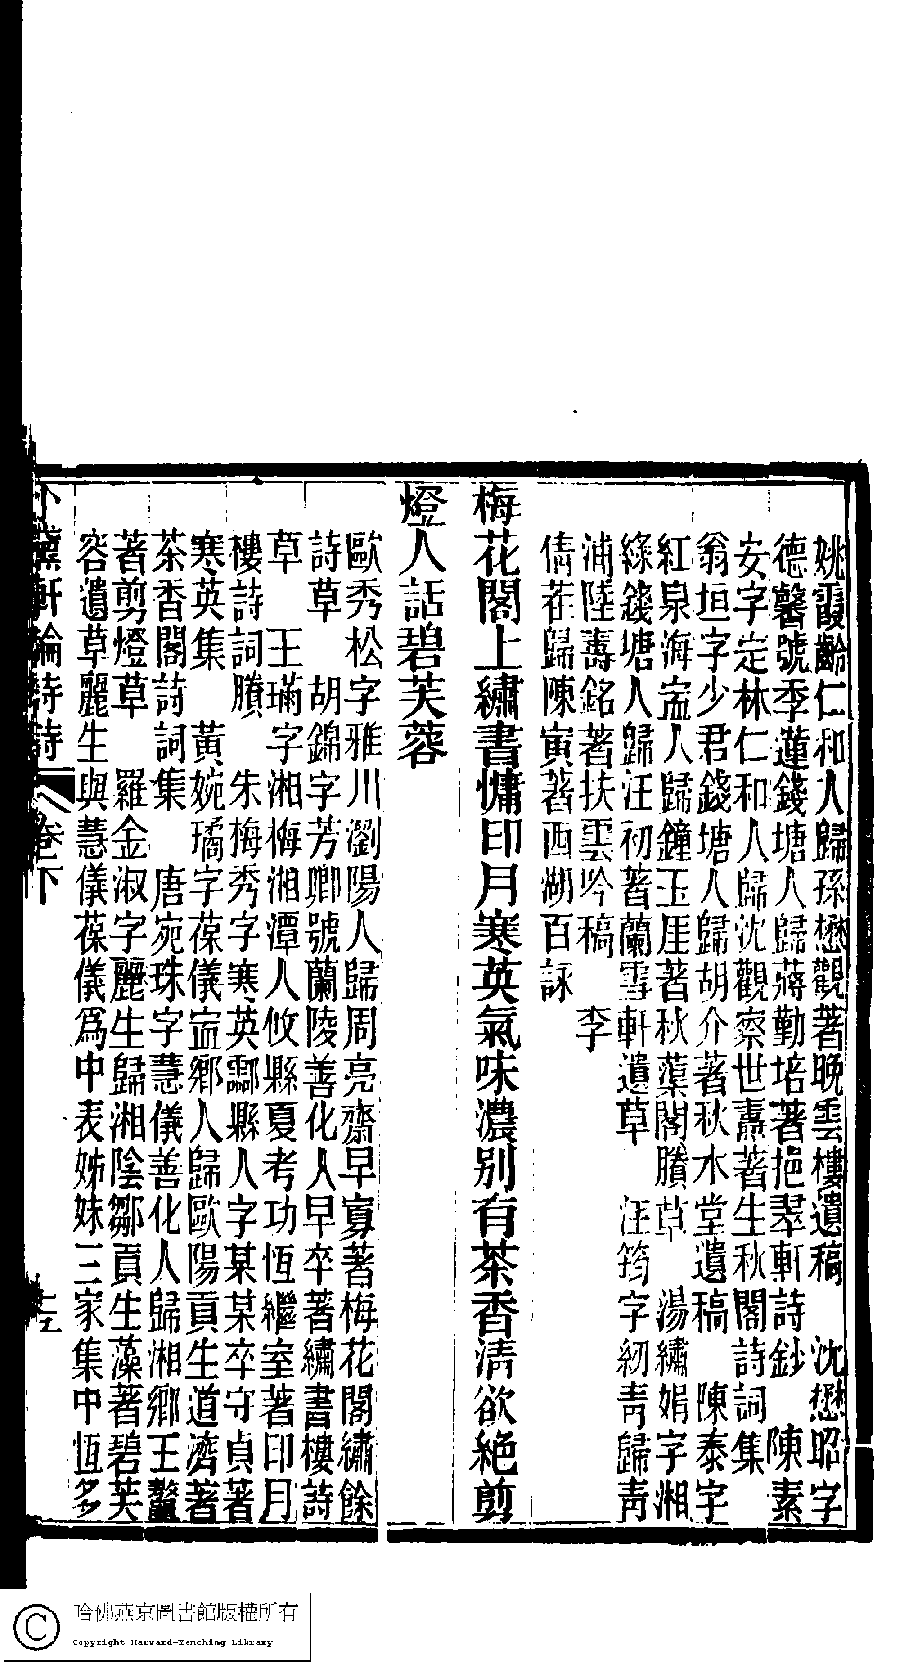 姚霞齡仁和人歸孫懋觀著晚雲樓遺稿　沈懋昭字
德馨號季蓮錢塘人歸蔣勤培著挹翠軒詩鈔　陳素
安字定林仁和人歸沈觀察世燾著生秋閣詩詞集
翁垣字少君錢塘人歸胡介著秋水堂遺稿　陳泰字
紅泉海寍人歸鐘玉厓著秋蘂閣賸草　湯繡娟字湘
綠錢塘人歸汪初著蘭雪軒遺草　汪筠字紉青歸青
浦陸壽銘著扶雲吟稿　李
倩茬歸陳寅著西湖百詠
梅花閣上繡書慵印月寒英氣味濃別有茶香清欲絶剪
燈人話碧芙蓉
歐秀松字雅川瀏陽人歸周亮齋早寡著梅花閣繡餘
詩草　胡錦字芳卿號蘭陵善化人早卒著繡書樓詩
草　王璊字湘梅湘潭人攸縣夏考功恆繼室著印月
樓詩詞賸　朱梅秀字寒英酃縣人字某某卒守貞著
寒英集　黃婉璚字葆儀寍鄉人歸歐陽貢生道濟著
茶香閣詩詞集　唐宛珠字慧儀善化人歸湘鄉王鼇
著剪燈草　羅金淑字麗生歸湘陰鄒貢生藻著碧芙
容遺草麗生與慧儀葆儀爲中表姊妹三家集中恆多
黛軒論詩詩　卷下
哈佛燕京圖書館版權所有
Copyright Harvard-Yenching Library